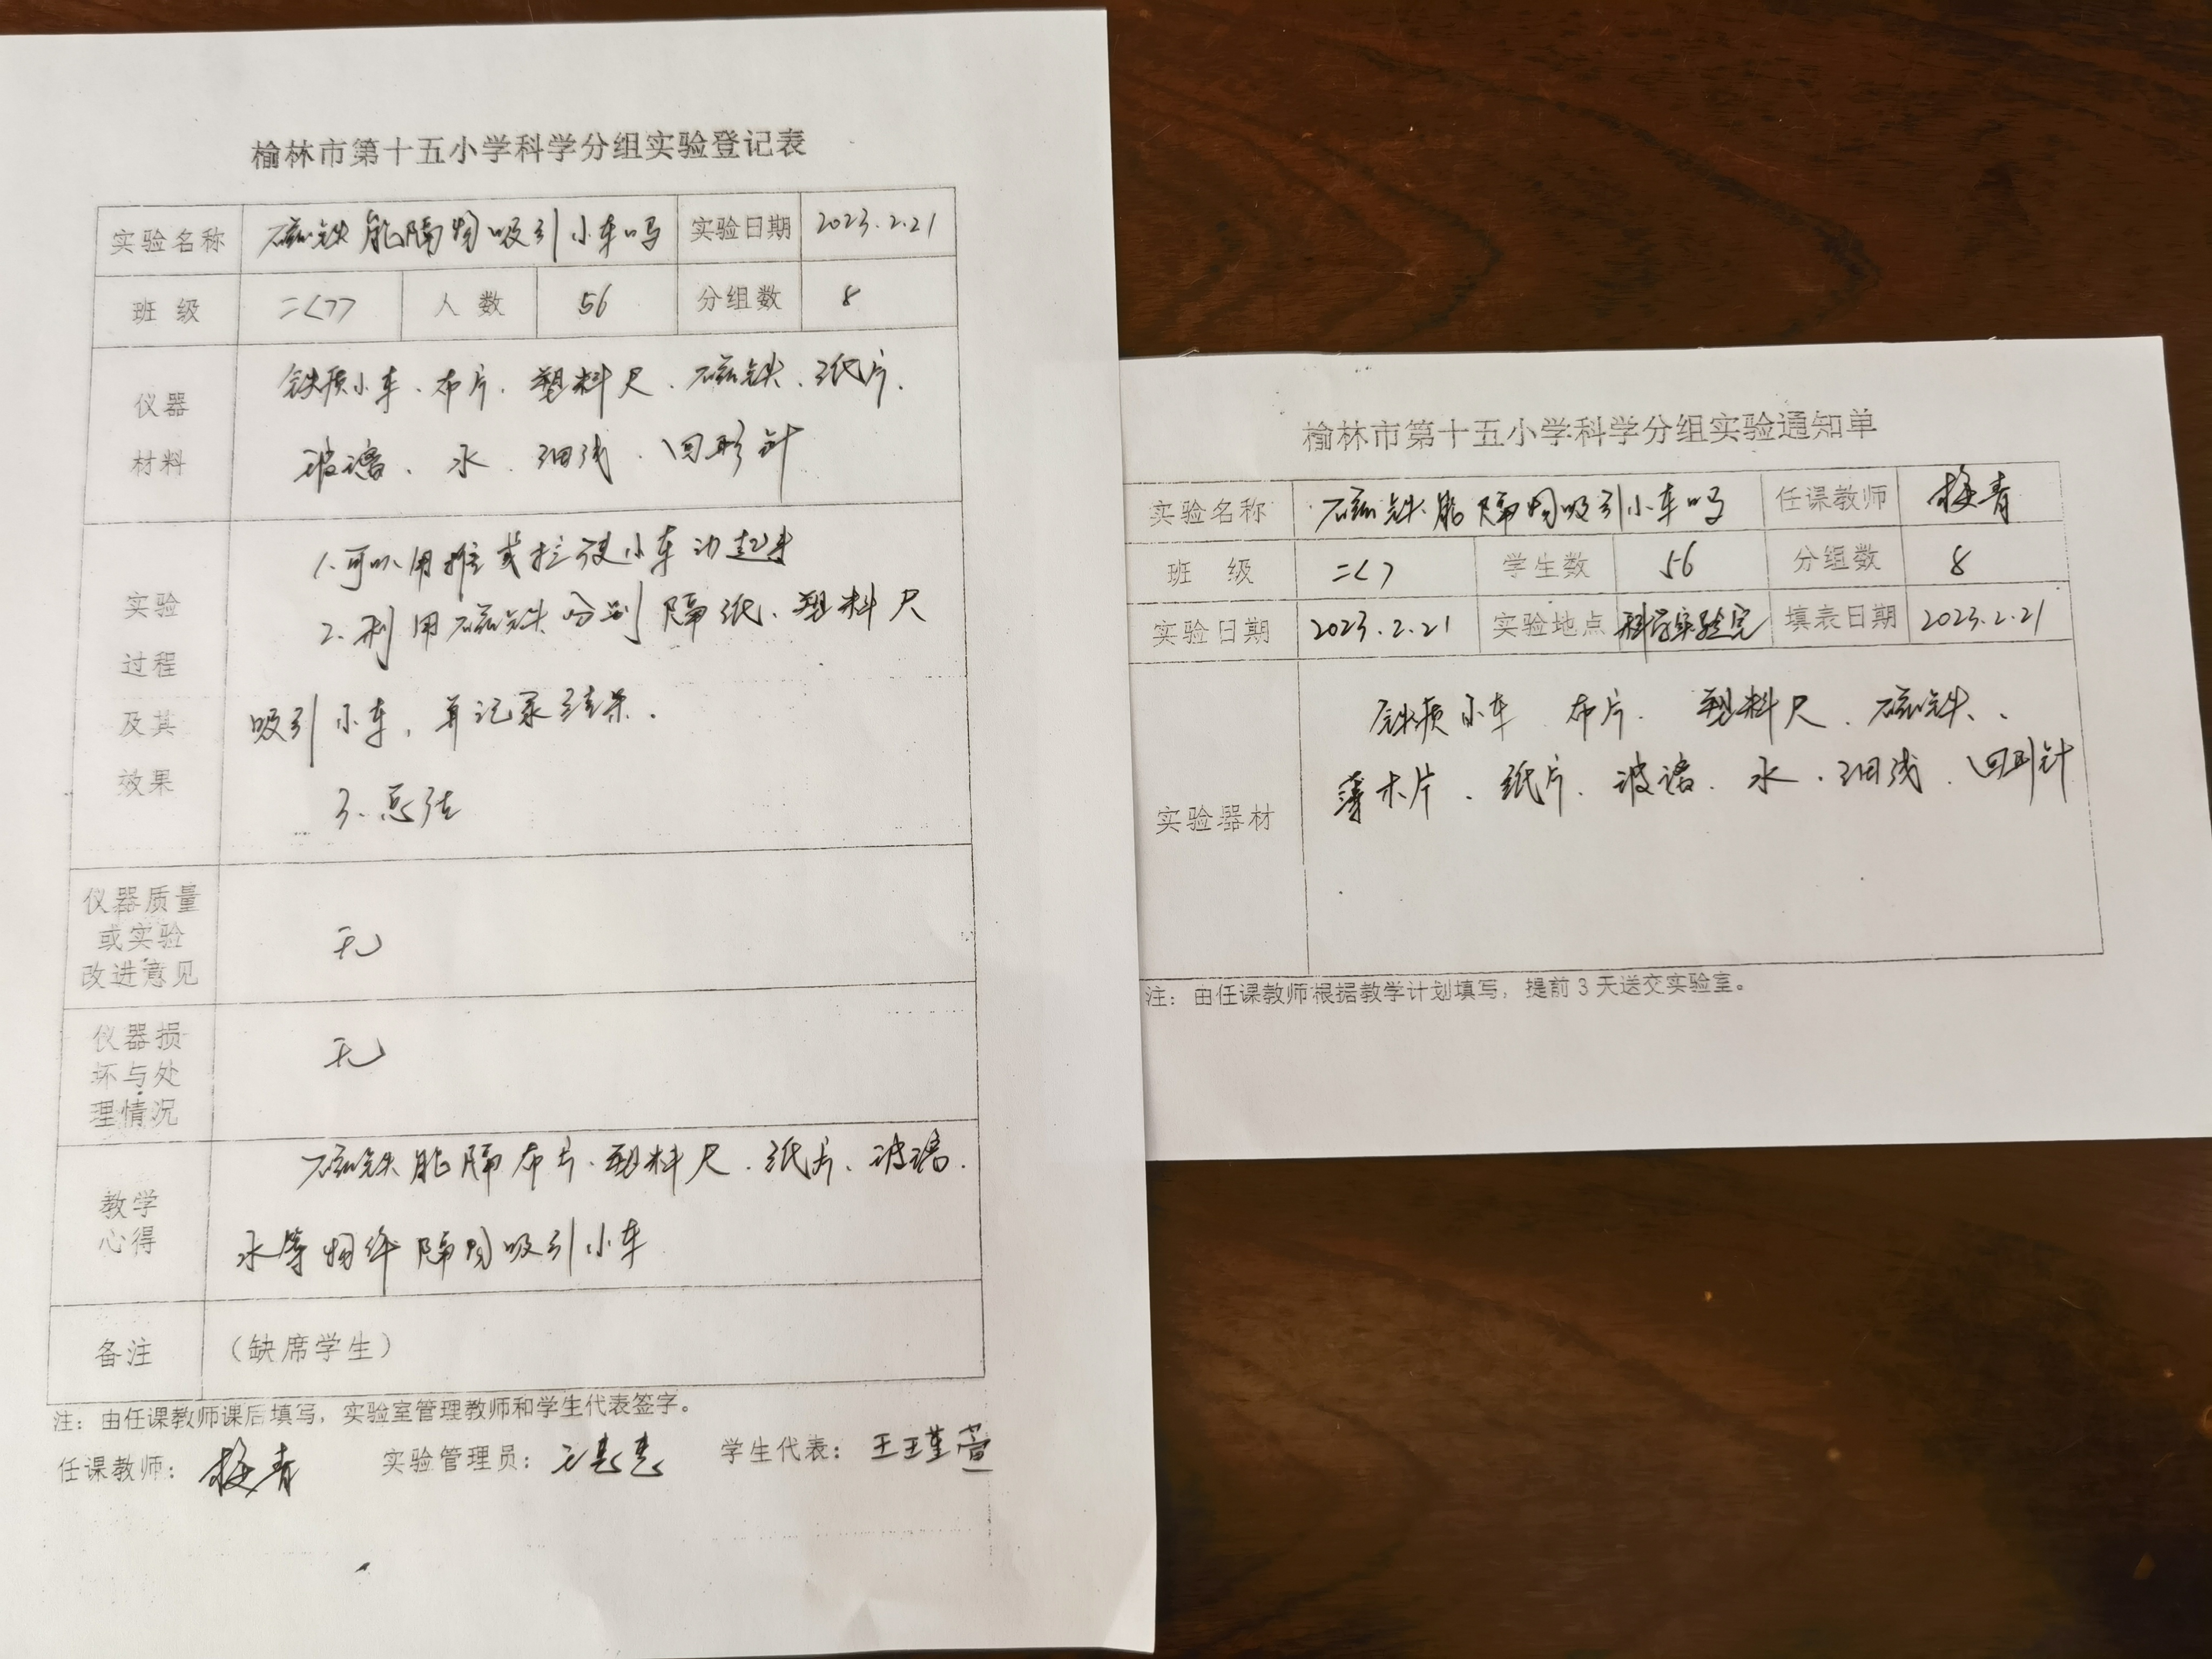 榆林市第十五小学科学分组实验登记表
实验名称 磁铁能隔物吸引小车吗 实验日期 2023.2.21
班级 二<7> 人数 56 分组数 8
仪器
材料
铁质小车、布片、塑料尺、磁铁、纸片、
玻璃、水、细线、回形针
实验
过程
及其
效果
1.可以用推或拉使小车动起来
2.利用磁铁分别隔纸、塑料尺
吸引小车,并记录结果.
3.总结
仪器质量
或实验
改进意见
无
仪器损
坏与处
理情况
无
教学
心得
磁铁能隔布片、塑料尺、纸片、玻璃、
水等物件隔物吸引小车
备注 (缺席学生)
注:由任课教师课后填写,实验室管理教师和学生代表签字。
任课教师: 实验管理员: 学生代表:王瑾萱
榆林市第十五小学科学分组实验通知单
实验名称 磁铁能隔物吸引小车吗 任课教师
班级 二<7 学生数 56 分组数 8
实验日期 2023.2.21 实验地点 科学实验室 填表日期 2023.2.21
实验器材
铁质小车 布片. 塑料尺、磁铁、
薄木片、纸片、玻璃、水、细线、回形针
注:由任课教师根据教学计划填写,提前3天送交实验室。